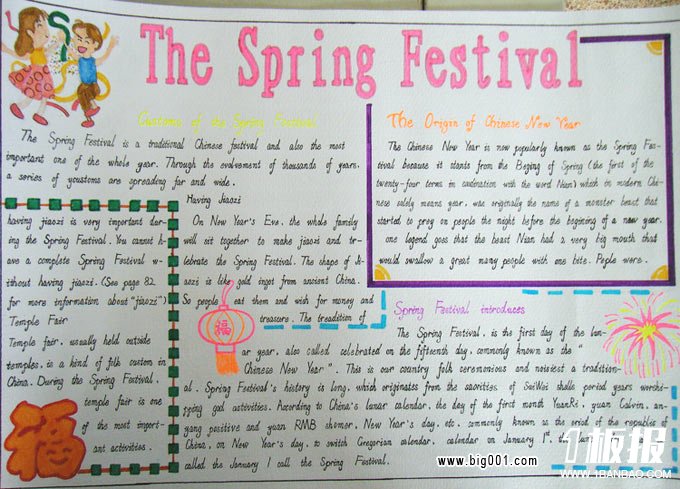 The Spring Festival
Customs of the Spring Festival
The Spring Festival is a traditional Chinese festival and also the most
important one of the whole year. Through the evolvement of thousands of years,
a series of youstoms are spreading far and wide.
Having Jiaozi
On New Year's Eve, the whole family
will sit together to make jiaozi and tr-
lebrate the Spring Festival. The shape of Ji-
aozi is like gold ingot from ancient China.
So people eat them and wish for money and
treasure. The treadition of
having jiaozi is very important dur-
ing the Spring Festival. You cannot h-
ave a complete Spring Festival w-
ithout having jiaozi. (See page 82
for more information about "jiaozi")
Temple Fair
Temple fair, usually held outside
temples, is a kind of folk custom in
China. During the Spring Festival,
temple fair is one
of the most import-
ant activities.
福
福
The Origin of Chinese New Year
The Chinese New Year is now popularly known as the Spring Fes-
tival because it starts from the Beging of Spring (the first of the
twenty-four terms in coudination with the word Nian) which in modern Chi-
nese solely means year, was originally the name of a monster beast that
started to prey on people the night before the beginning of a new year.
one legend goes that the beast Nian had a very big mouth that
would swallow a great many people with one bite. Peple were.
Spring Festival introduces
The Spring Festival, is the first day of the lun-
ar year, also called celebrated on the fifteenth day, commonly known as the "
Chinese New Year". This is our country folk ceremonious and noisiest a tradition-
al. Spring Festival's history is long, which originates from the sacorities of SuiWei shells period years worshi-
pping god activities. According to China's lunar calendar, the day of the first month YuanRi, yuan Calvin,
angang positive and yuan RMB shamer, New Year's day, etc, commonly known as the eriod of the republic of
China, on New Year's day, to switch Gregorian calendar, calendar on January 1st,
called the January 1 call the Spring Festival.
www.big001.com
1板报
WWW.1BANBAO.COM